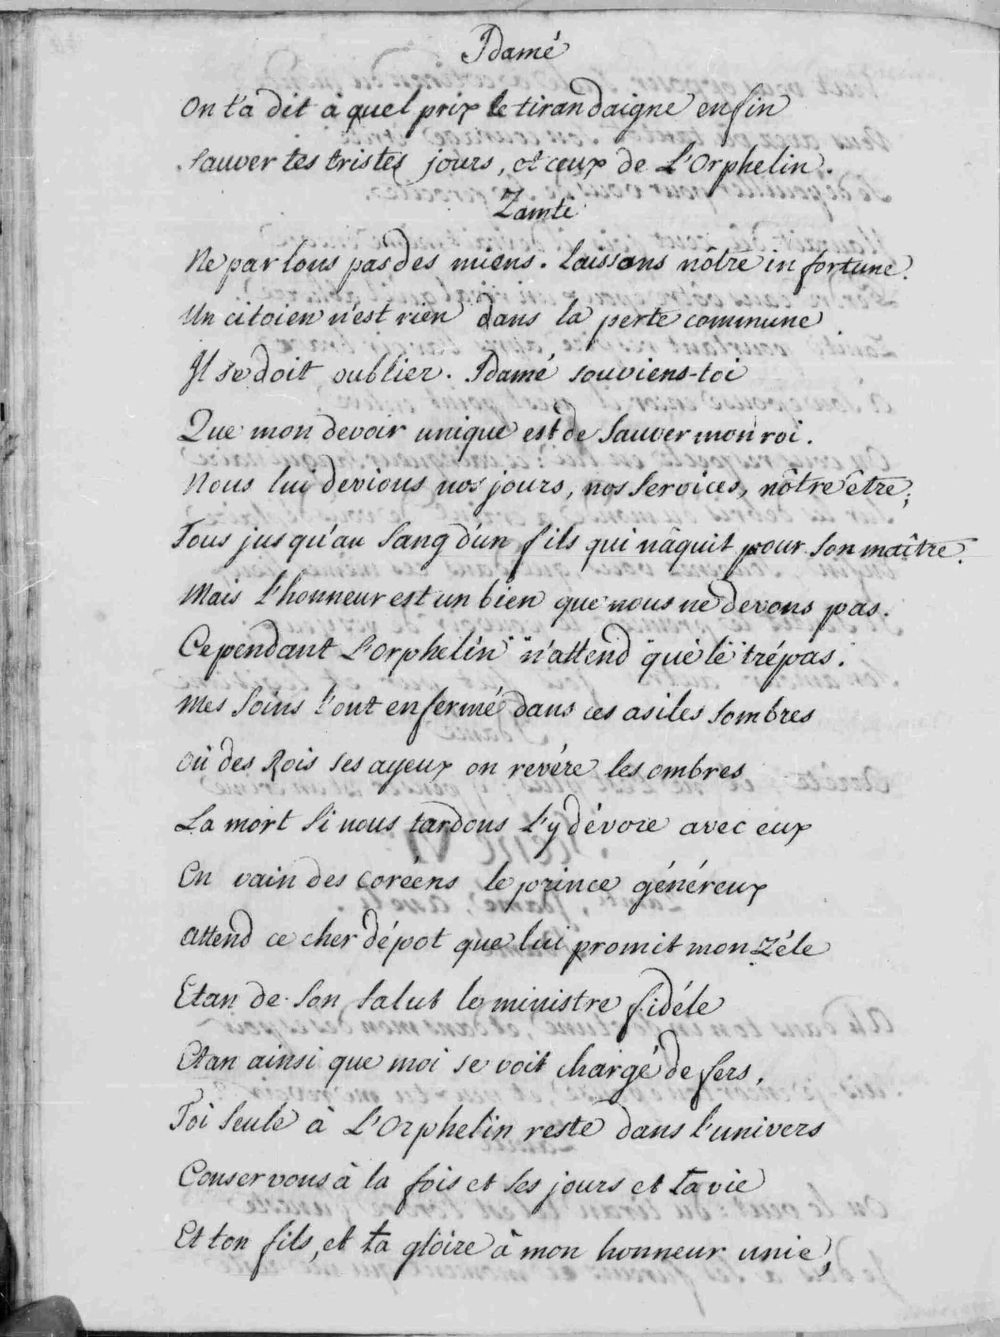 Idamé
On t'a dit à quel prix le tiran daigne enfin
Sauver tes tristes jours, et ceux de L'Orphelin.
Zamti
Ne parlons pas des miens. Laissons nôtre infortune.
Un citoien n'est rien dans la perte commune
Il se doit oublier. Idamé souviens-toi
Que mon devoir unique est de Sauver mon roi.
Nous lui devions nos jours, nos Services, nôtre être;
Tous jusqu'au Sang d'un fils qui nâquit pour Son maître.
Mais l'honneur est un bien que nous ne devons pas.
Cependant L'Orphelin n'attend que le trépas.
Mes Soins l'ont enfermé dans ces asiles Sombres
Où des Rois ses ayeux on revére les ombres
La mort Si nous tardons L'y dévore avec eux
En vain des coréens le prince généreux
Attend ce cher dépot que lui promit mon Zéle
Etan de Son Salut le ministre fidéle
Etan ainsi que moi se voit chargé de fers.
Toi Seule à L'Orphelin reste dans l'univers
Conservons à la fois et Ses jours et ta vie
Et ton fils, et ta gloire à mon honneur unie,